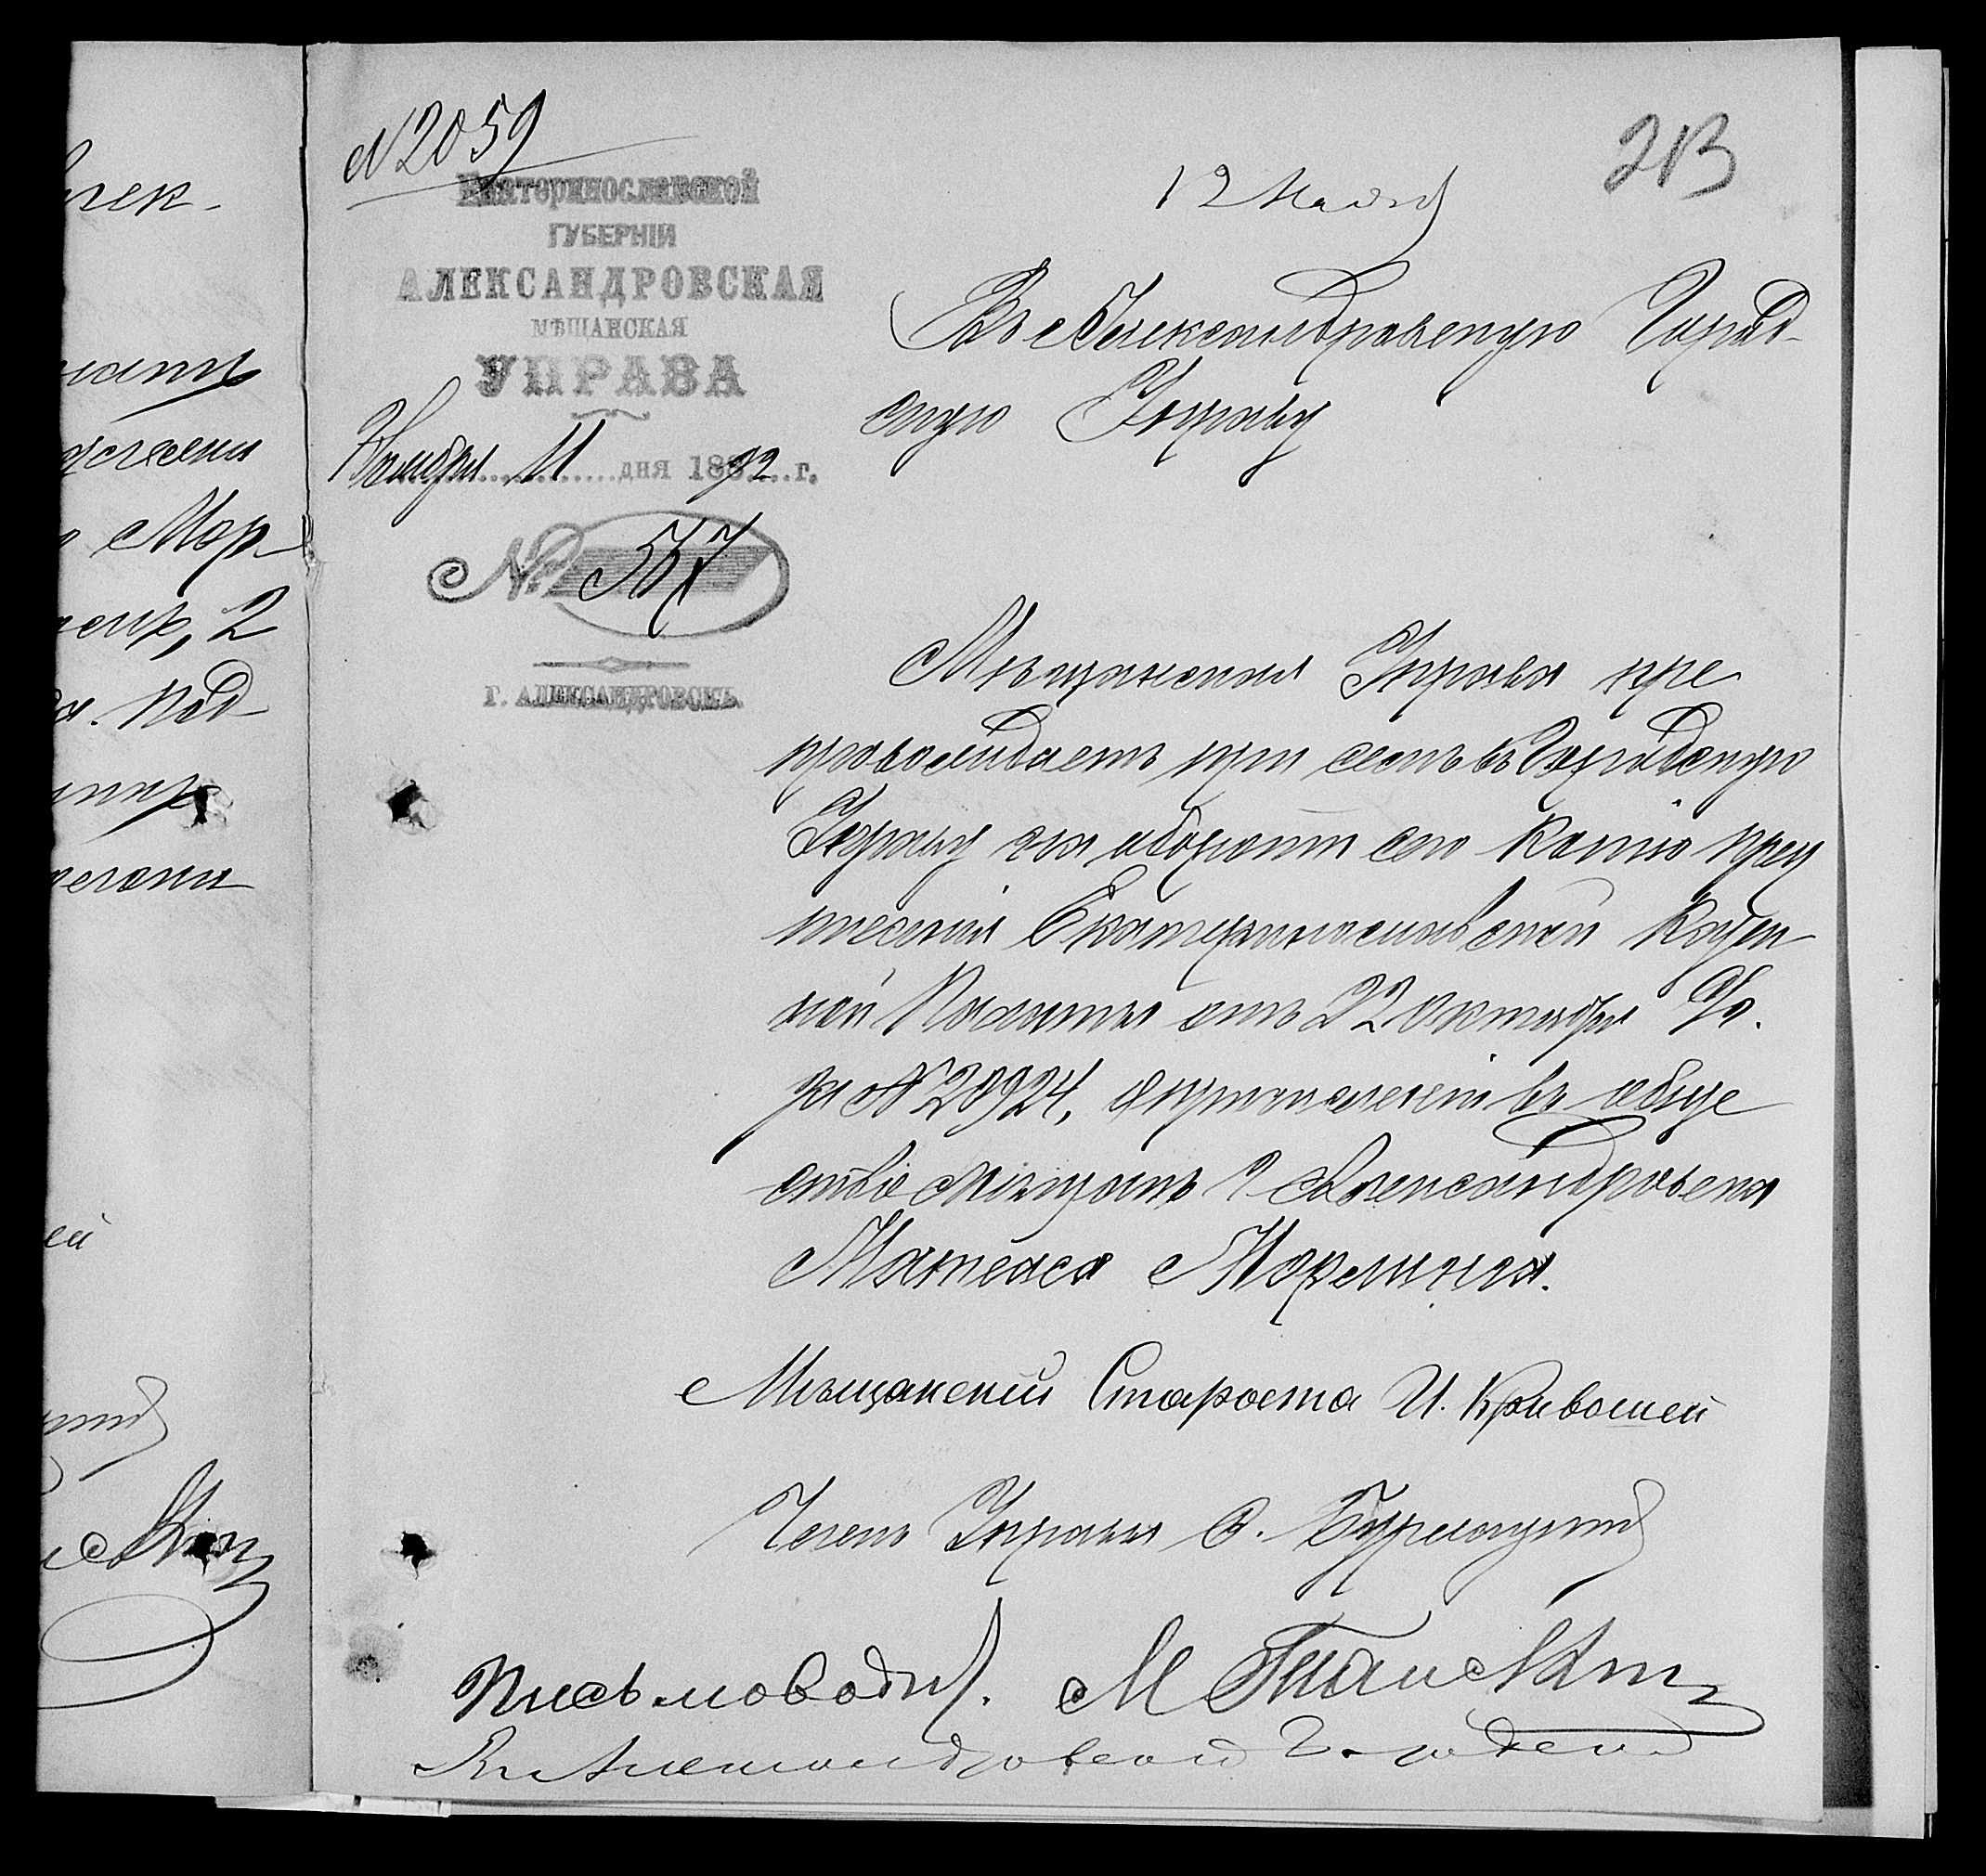 N 2059
213
Екатеринославской
ГУБЕРНІИ
АЛЕКСАНДРОВСКАЯ
МѢЩАНСКАЯ
УПРАВА
Ноября 11 дня 1892 г.
№ 557
Г. АЛЕКСАНДРОВСКЪ.
12 Нояб
Въ Александровскую Город-
скую Управу
Мѣщанская Управа пре
провождаетъ при семъ въ Городскую
Управу на оборотѣ сего копію пред
писанія Екатеринославской Казен
ной Палаты отъ 22 Октября с/г.
за № 20924, о причисленіи въ обще
ство мѣщанъ г Александровска
Матеаса Мормуна.
Мѣщанскій Староста И. Кривошей
Членъ Управы
Письмовод.
Въ Александровской Городской
Мор-
2